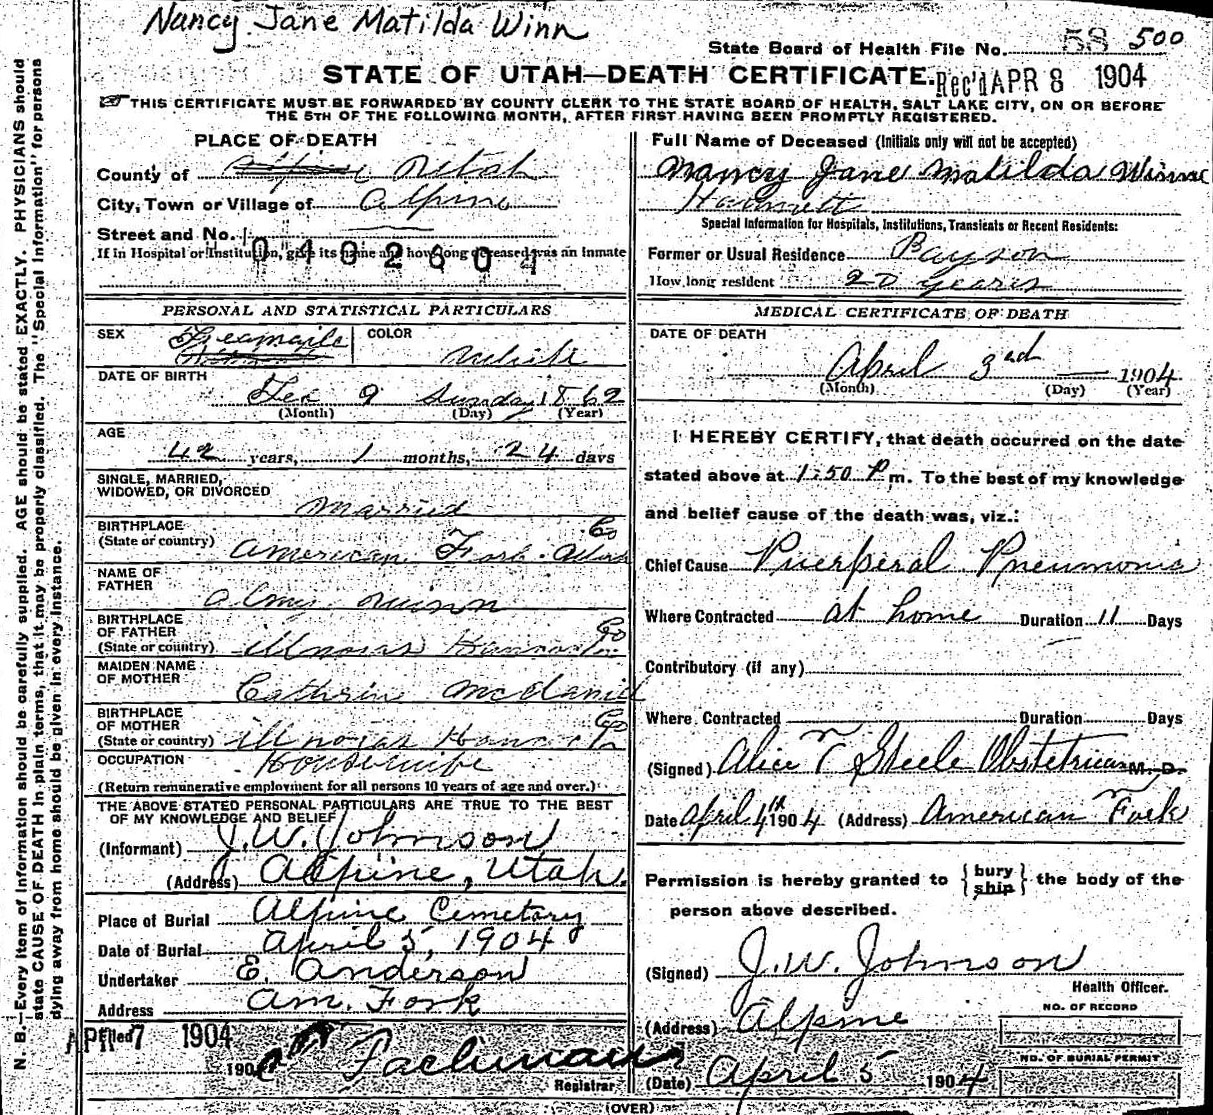 Nancy Jane Matilda Winn
State Board of Health File No. 58 500
STATE OF UTAH—DEATH CERTIFICATE. Rec'd APR 8 1904
THIS CERTIFICATE MUST BE FORWARDED BY COUNTY CLERK TO THE STATE BOARD OF HEALTH, SALT LAKE CITY, ON OR BEFORE
THE 5TH OF THE FOLLOWING MONTH, AFTER FIRST HAVING BEEN PROMPTLY REGISTERED.
N. B.—Every item of information should be carefully supplied. AGE should be stated EXACTLY. PHYSICIANS should
state CAUSE OF DEATH in plain terms, that it may be properly classified. The "Special Information" for persons
dying away from home should be given in every instance.
PLACE OF DEATH
County of Alpine Utah
City, Town or Village of Alpine
Street and No.
If in Hospital or Institution, give its name and how long deceased was an inmate
0402604
PERSONAL AND STATISTICAL PARTICULARS
SEX Feamaile COLOR White
DATE OF BIRTH
Feb 9 Sunday 1862
(Month) (Day) (Year)
AGE
42 years, 1 months, 24 days
SINGLE, MARRIED,
WIDOWED, OR DIVORCED
Married
BIRTHPLACE
(State or country) American Fork Utah Co
NAME OF
FATHER
Almy
BIRTHPLACE
OF FATHER
(State or country) illnoias Co
MAIDEN NAME
OF MOTHER
Cathrin McDaniel
BIRTHPLACE
OF MOTHER
(State or country) illnoias Co
OCCUPATION Housewife
(Return remunerative employment for all persons 10 years of age and over.)
THE ABOVE STATED PERSONAL PARTICULARS ARE TRUE TO THE BEST
OF MY KNOWLEDGE AND BELIEF
(Informant) J. W. Johnson
(Address) Alpine, Utah.
Place of Burial Alpine Cemetary
Date of Burial April 5, 1904
Undertaker E. Anderson
Address Am. Fork
Filed APR 7 1904
190
Registrar
Full Name of Deceased (Initials only will not be accepted)
Nancy Jane Matilda Winne
Special Information for Hospitals, Institutions, Transients or Recent Residents:
Former or Usual Residence Payson
How long resident 20 years
MEDICAL CERTIFICATE OF DEATH
DATE OF DEATH
April 3rd 1904
(Month) (Day) (Year)
I HEREBY CERTIFY, that death occurred on the date
stated above at 1:50 P m. To the best of my knowledge
and belief cause of the death was, viz.:
Chief Cause Puerperal Pneumonia
Where Contracted at home Duration 11 Days
Contributory (if any)
Where Contracted Duration Days
(Signed) Alice T Steele Obstetrician M. D.
Date April 4th 1904 (Address) American Fork
Permission is hereby granted to {bury ship} the body of the
person above described.
(Signed) J. W. Johnson
Health Officer.
(Address) Alpine
NO. OF RECORD
NO. OF BURIAL PERMIT
(Date) April 5 1904
(OVER)